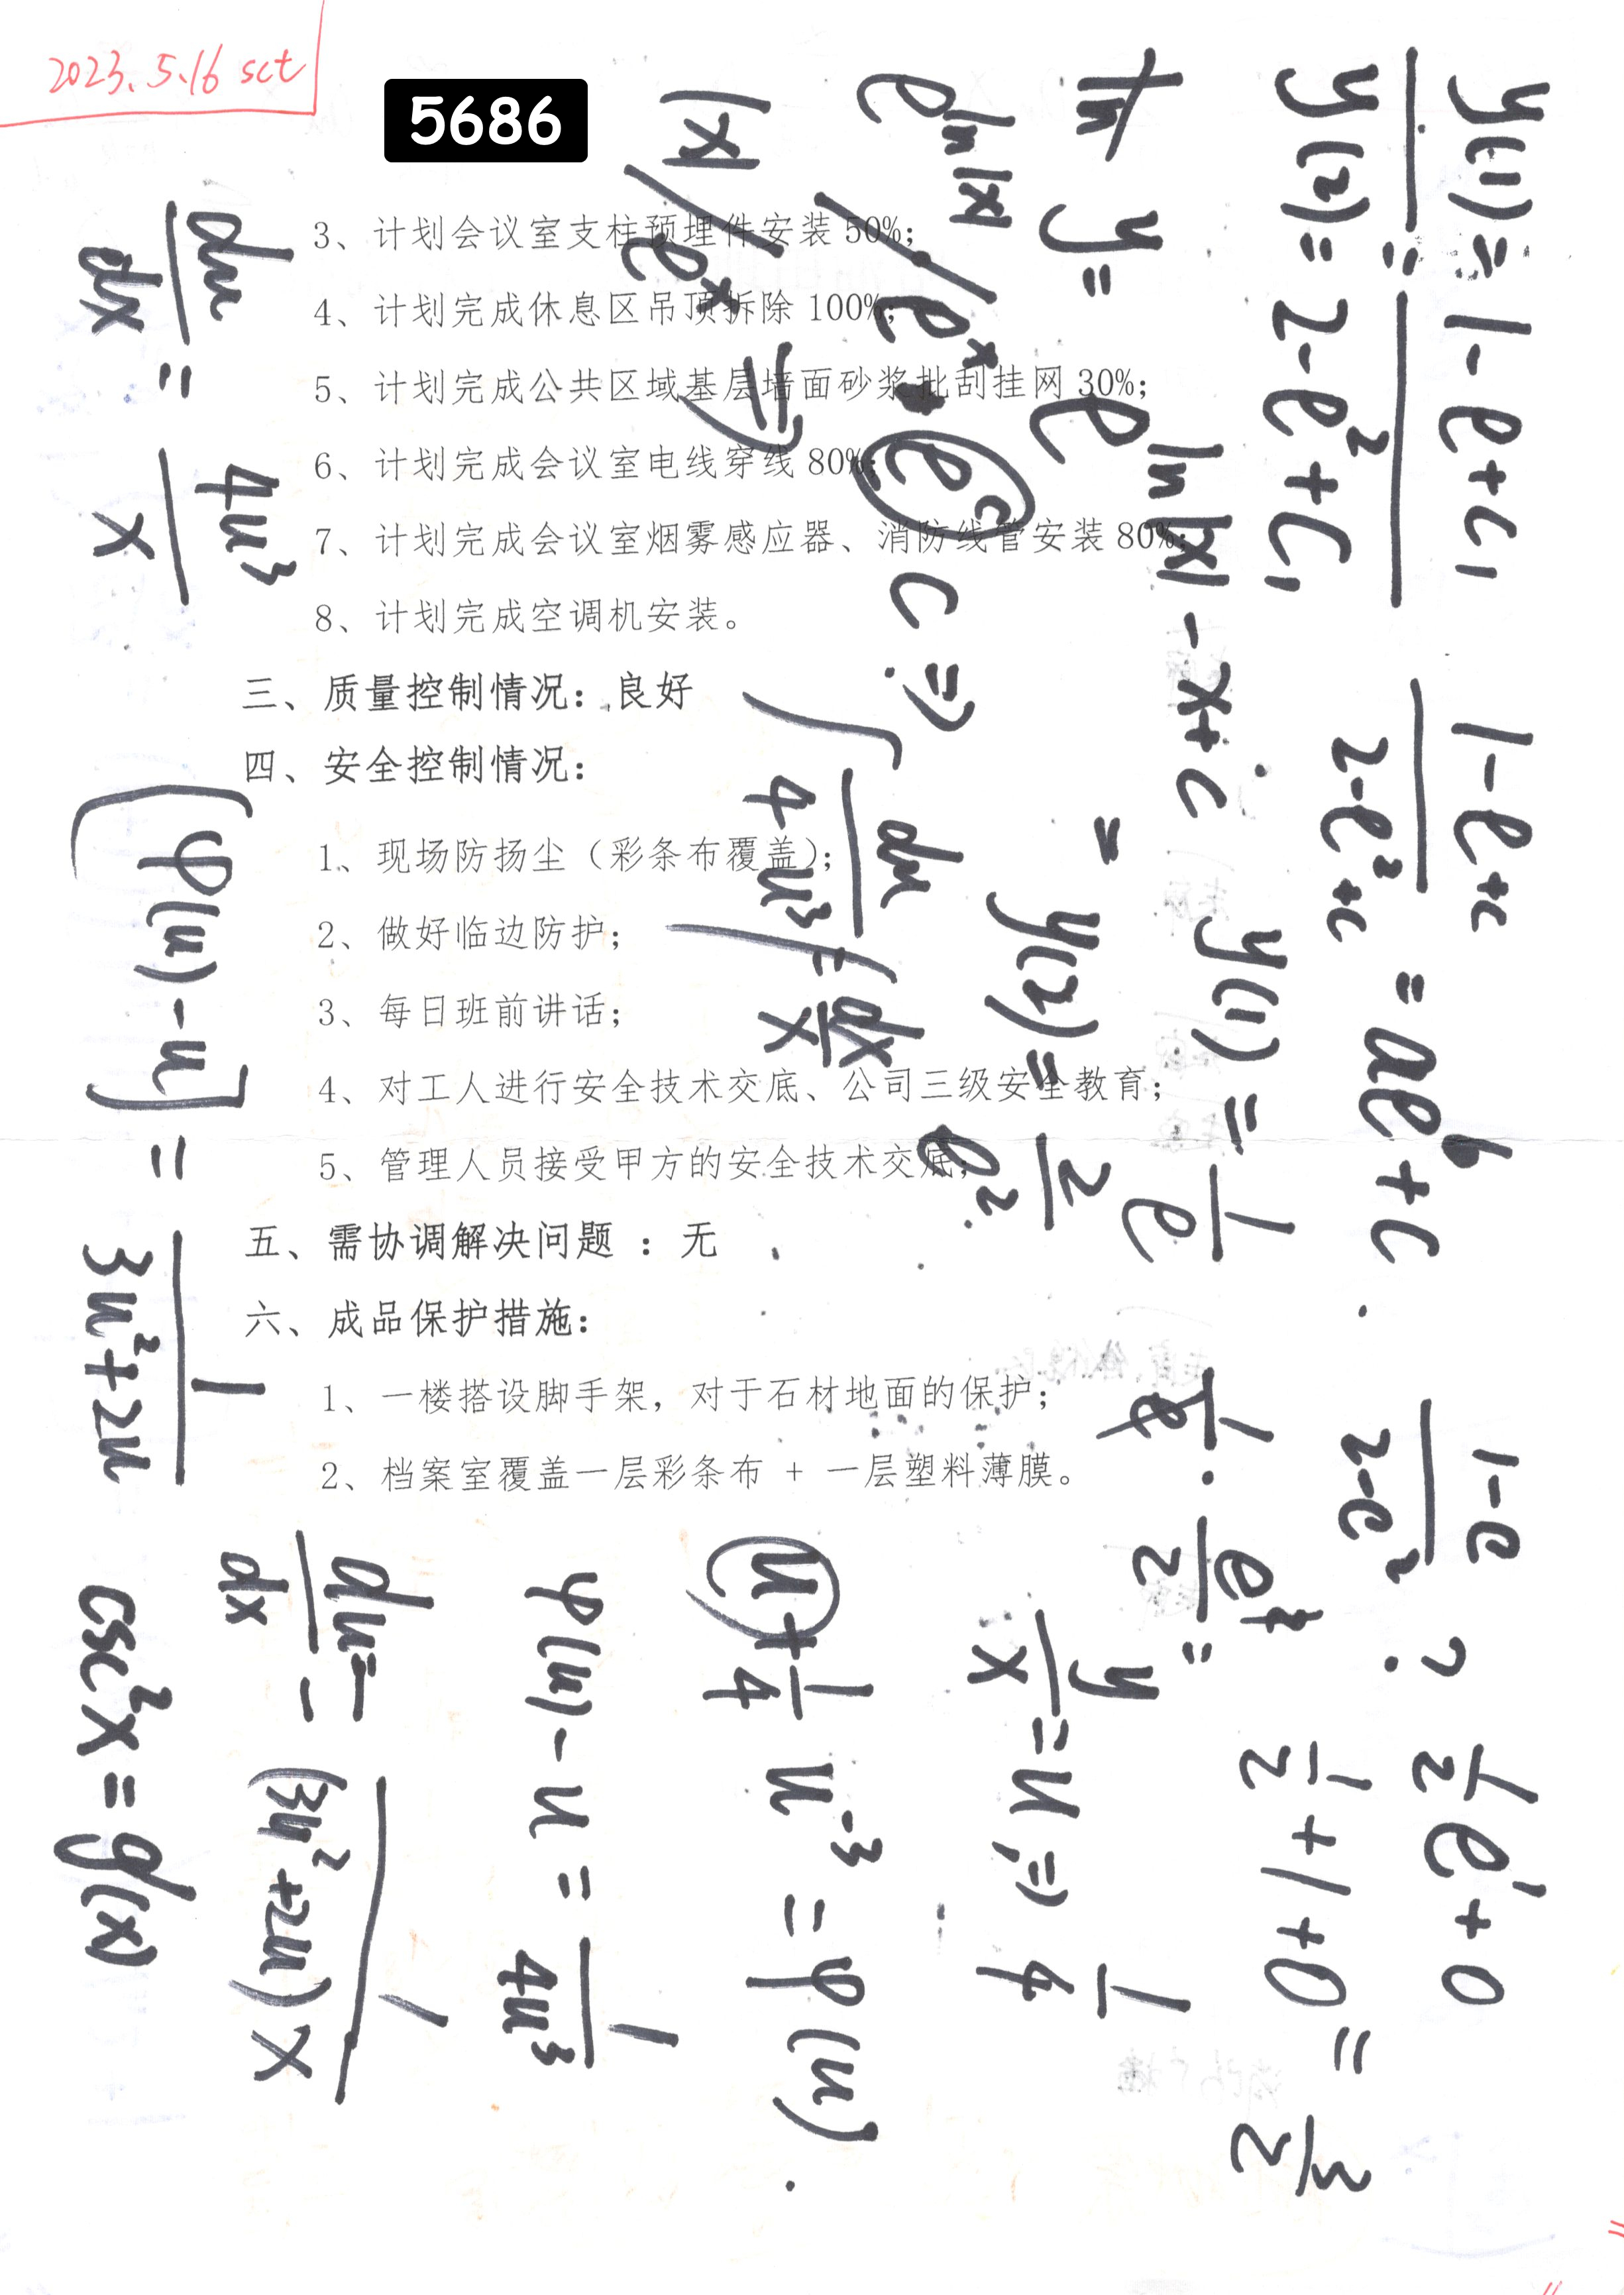 2023.5.16 sct
5686
3、计划会议室支柱预埋件安装 50%;
4、计划完成休息区吊顶拆除 100%;
5、计划完成公共区域基层墙面砂浆批刮挂网 30%;
6、计划完成会议室电线穿线 80%;
7、计划完成会议室烟雾感应器、消防线管安装 80%;
8、计划完成空调机安装。
三、质量控制情况：良好
四、安全控制情况：
1、现场防扬尘（彩条布覆盖）;
2、做好临边防护;
3、每日班前讲话;
4、对工人进行安全技术交底、公司三级安全教育;
5、管理人员接受甲方的安全技术交底;
五、需协调解决问题 ：无
六、成品保护措施：
1、一楼搭设脚手架，对于石材地面的保护;
2、档案室覆盖一层彩条布 + 一层塑料薄膜。
y(1) = 1-e+c₁
y(2) = 2-e²+c₁
(1-e+c)/(2-e²+c) = ae^b+c.
(1-e)/(2-e²) ?
1/2 e¹+0
1/2+1+0 = 3/2
y = e^(ln|x|-x+c)
y(1) = 1/e
y(2) = 2/e²
e^(ln|x|)/e^x · e^c
c ⇒
|x|/e^x ⇒
∫ du/(4u³) = ∫ dx/x
y/x = u ⇒ 1/4
u+1/4 u⁻³ = φ(u).
φ(u)-u = 1/(4u³)
du/dx = 4u³/x
[φ(u)-u] = 1/(3u²+2u)
du/dx = 1/((3u²+2u)x)
csc²x = g'(x)